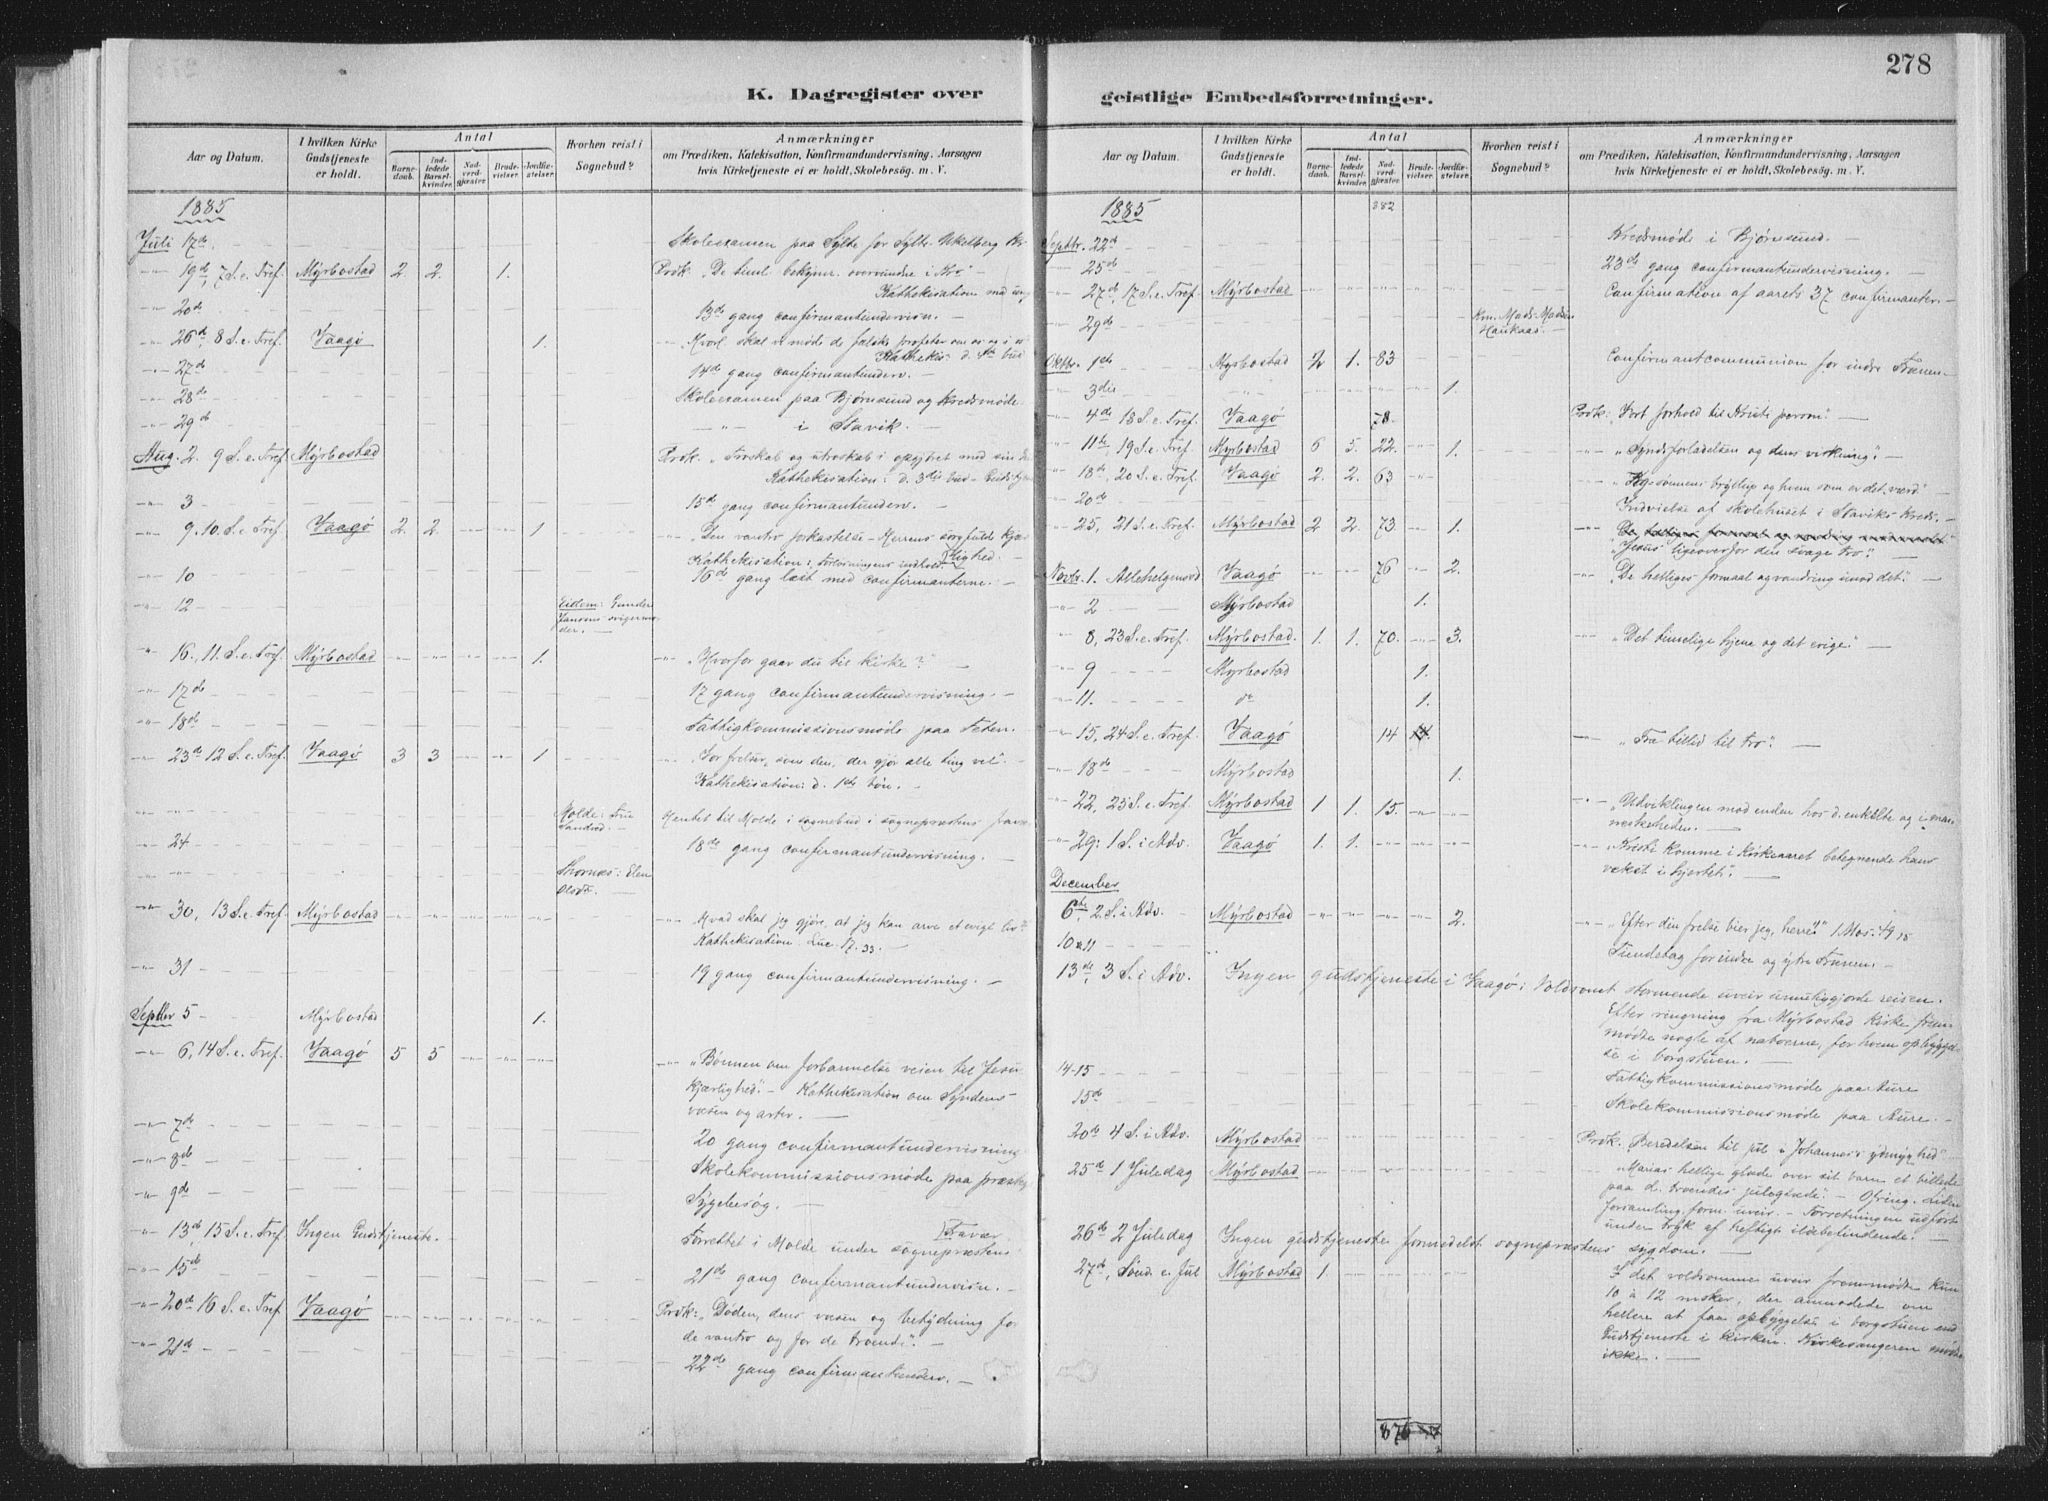 278
K. Dagregister over
Aar og Datum.
I hvilken Kirke Gudstjeneste er holdt.
Antal
Barnedaab.
Indledede Barselkvinder.
Nadverdgjæster.
Brudevielser.
Jordfæstelser.
Hvorhen reist i Sognebud?
Anmærkninger
om Prædiken, Katekisation, Konfirmandundervisning, Aarsagen
hvis Kirketjeneste ei er holdt, Skolebesøg. m. V.
1885
Juli 17de Skoleexamen paa Sylte for Sylte
-"- 19de, 7 S. e. Tref. Myrbostad 2 2. 1. Præk. "De timl. bekymr. overvundne i
Kathekisation med
-"- 20de 13de gang confirmantundervisn. -
-"- 26de, 8 S. e. Tref. Vaagø 1. vi møde de falske profeter
Kathekis:
-"- 27de 14de gang confirmantunderv. -
-"- 28de Skoleexamen paa Bjørnsund og Kredsmøde
-"- 29de -"- i Stavik. -
Aug. 2. 9 S. e. Tref. Myrbostad Præk. "Troskab og utroskab i
Kathekisation: d. 3die bud
-"- 3 15de gang confirmantunderv. -
-"- 9, 10. S. e. Tref. Vaagø 2. 2. 1 "Den vantro forkastelse - Herrens sorgfulde kjærlighed.
Kathekisation: forløsningens indhold.
-"- 10 16de gang læst med confirmanterne. -
-"- 12 Eidem: Gunder Jansens svigermoder. -
-"- 16., 11. S. e. Tref. Myrbostad 1. -"- "Hvorfor gaar du til kirke?" -
-"- 17de 17 gang confirmantundervisning. -
-"- 18de Fattigkommissionsmøde paa
-"- 23de 12 S. e. Tref. Vaagø 3 3 1 -"- frelser, som den, der gjør alle ting vel".
Kathekisation: d. 1ste bøn. -
-"- Molde: Fru Hentet til Molde i sognebud i sogneprestens
-"- 24 18de gang confirmantundervisning. -
-"- Thornes: Elen Olsdt.
-"- 30, 13 S. e. Tref. Myrbostad -"- "Hvad skal jeg gjøre, at jeg kan arve et evigt liv?"
Kathekisation: Luc. 17. 33. -
-"- 31 19 gang confirmantundervisning. -
Septbr 5 Myrbostad 1.
-"- 6, 14 S. e. Tref. Vaagø 5 5 -"- "Bønnen om forbannelse veien til Jesu
kjærlighed". - Kathekisation om Syndens
væsen og arter. -
-"- 7de 20 gang confirmantundervisning
-"- 8de Skolekommissionsmøde paa
-"- 9de Sygebesøg. -
-"- 13de, 15 S. e. Tref. Ingen Gudstjeneste. Forrettet i Molde under sogneprestens fravær
-"- 15de 21de gang confirmantundervisn. -
-"- 20de 16 S. e. Tref. Vaagø Præk: "Døden, dens væsen og betydning for
de vantro og for de troende". -
-"- 21de 22de gang confirmantunderv. -
geistlige Embedsforretninger.
Aar og Datum.
I hvilken Kirke Gudstjeneste er holdt.
Antal
Barnedaab.
Indledede Barselkvinder.
Nadverdgjæster.
Brudevielser.
Jordfæstelser.
Hvorhen reist i Sognebud?
Anmærkninger
om Prædiken, Katekisation, Konfirmandundervisning, Aarsagen
hvis Kirketjeneste ei er holdt, Skolebesøg. m. V.
1885 382
Septbr. 22de Kredsmøde i Bjørnsund. -
-"- 25de 23de gang confirmantundervisning. -
-"- 27de, 17 S. e. Tref. Myrbostad Confirmation af aarets 37 confirmanter. -
-"- 29de Mads Madsen Haukaas. -
Oktbr. 1ste Myrbostad 2 1. 83 Confirmantcommunion for indre Frænen
-"- 3die 1.
-"- 4de 18 S. e. Tref. Vaagø 78. Præk: "Vort forhold til Kristi person" -
-"- 11te, 19 S. e. Tref. Myrbostad 6 5. 22. 1. -"- "Syndsforladelsen og dens virkning". -
-"- 18de, 20 S. e. Tref. Vaagø 2. 2. 63 -"- bryllup og hvem som er det værd"
-"- 20de Indvielse af skolehuset i Staviks Kreds. -
-"- 25, 21 S. e. Tref. Myrbostad 2 2. 73. 1.
"Jesus ligeoverfor den svage tro".
Novbr. 1. Allehelgensd. Vaagø 76 2. -"- "De helliges formaal og vandring imod det". -
-"- 2 Myrbostad 1.
-"- 8, 23 S. e. Tref. Myrbostad. 1. 1. 70. 3. -"- "Det timelige hjem og det evige".
-"- 9 Myrbostad 1.
-"- 11. do 1.
-"- 15, 24 S. e. Tref. Vaagø 14 -"- "Fra tillid til tro". -
-"- 18de Myrbostad 1.
-"- 22, 25 S. e. Tref. Myrbostad 1 1. 15. -"- "Udviklingen mod enden hos d. enkelte og i menneskeheden. -
-"- 29: 1 S. i Adv. Vaagø 1. 1. -"- "Kristi komme i kirkeaaret betegnende hans
vækst i hjertet".
December
6te 2 S. i Adv. Myrbostad 2. -"- "Efter din frelse bier jeg, herre!" 1 Mos. 49 18
10 & 11 for indre og ytre Frænen. -
13de, 3 S. i Adv. Ingen gudstjeneste i Vaagø: Voldsomt stormende uveir umuliggjorde reisen.
Efter ringning fra Myrbostad Kirke fremmødte nogle af naboerne, for hvem opbyggelse i borgstuen. -
14-15 Fattigkommissionsmøde paa Aure
15de Skolekommissionsmøde paa Aure. -
20de 4 S. i Adv. Myrbostad Præk. Beredelsen til jul i Johannes's ydmyghed"
25de 1 Juledag Myrbostad "Marias hellige glæde over sit barn et billede
paa de troendes juleglæde". - Ofring. Liden
forsamling form. uveir. - Forretningen udført
under tryk af heftigt ildebefindende. -
26de 2 Juledag Ingen gudstjeneste formedelst sogneprestens sygdom. -
27de, Sønd. e. Jul Myrbostad 1. I det voldsomme uveir fremmødte kun
10 à 12 msker, der anmodede om
hellere at faa opbyggelse i borgstuen end
Gudstjeneste i Kirken. Kirkesangeren mødte
ikke. -
876